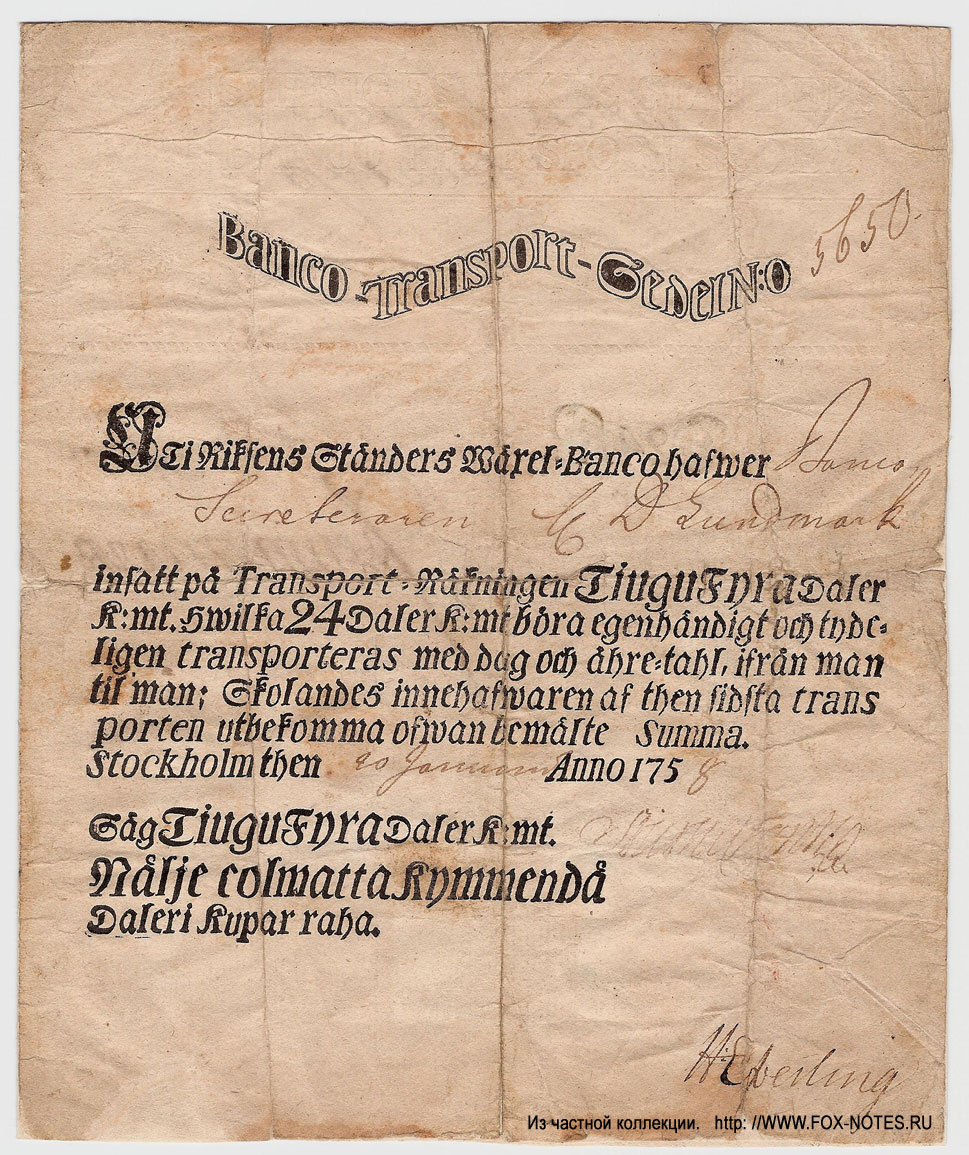 Banco-Transport-Sedel N:o 5650.
UTi Riksens Ständers Wäxel-Banco hafwer Banco
Secreteraren C D Lundmark
insatt på Transport-Räkningen Tiugu Fyra Daler
K:mt. Hwilka 24 Daler K:mt böra egenhändigt och tyde-
ligen transporteras med dag och åhre-tahl, ifrån man
til man; Skolandes innehafwaren af then sidsta trans
porten utbekomma ofwanbemälte Summa.
Stockholm then 20 Januarii Anno 1758
Säg Tiugu Fyra Daler K:mt.
Nälje colmatta Kymmendä
Daleri Kupar raha.
H Eberling
Из частной коллекции. http: //WWW.FOX-NOTES.RU